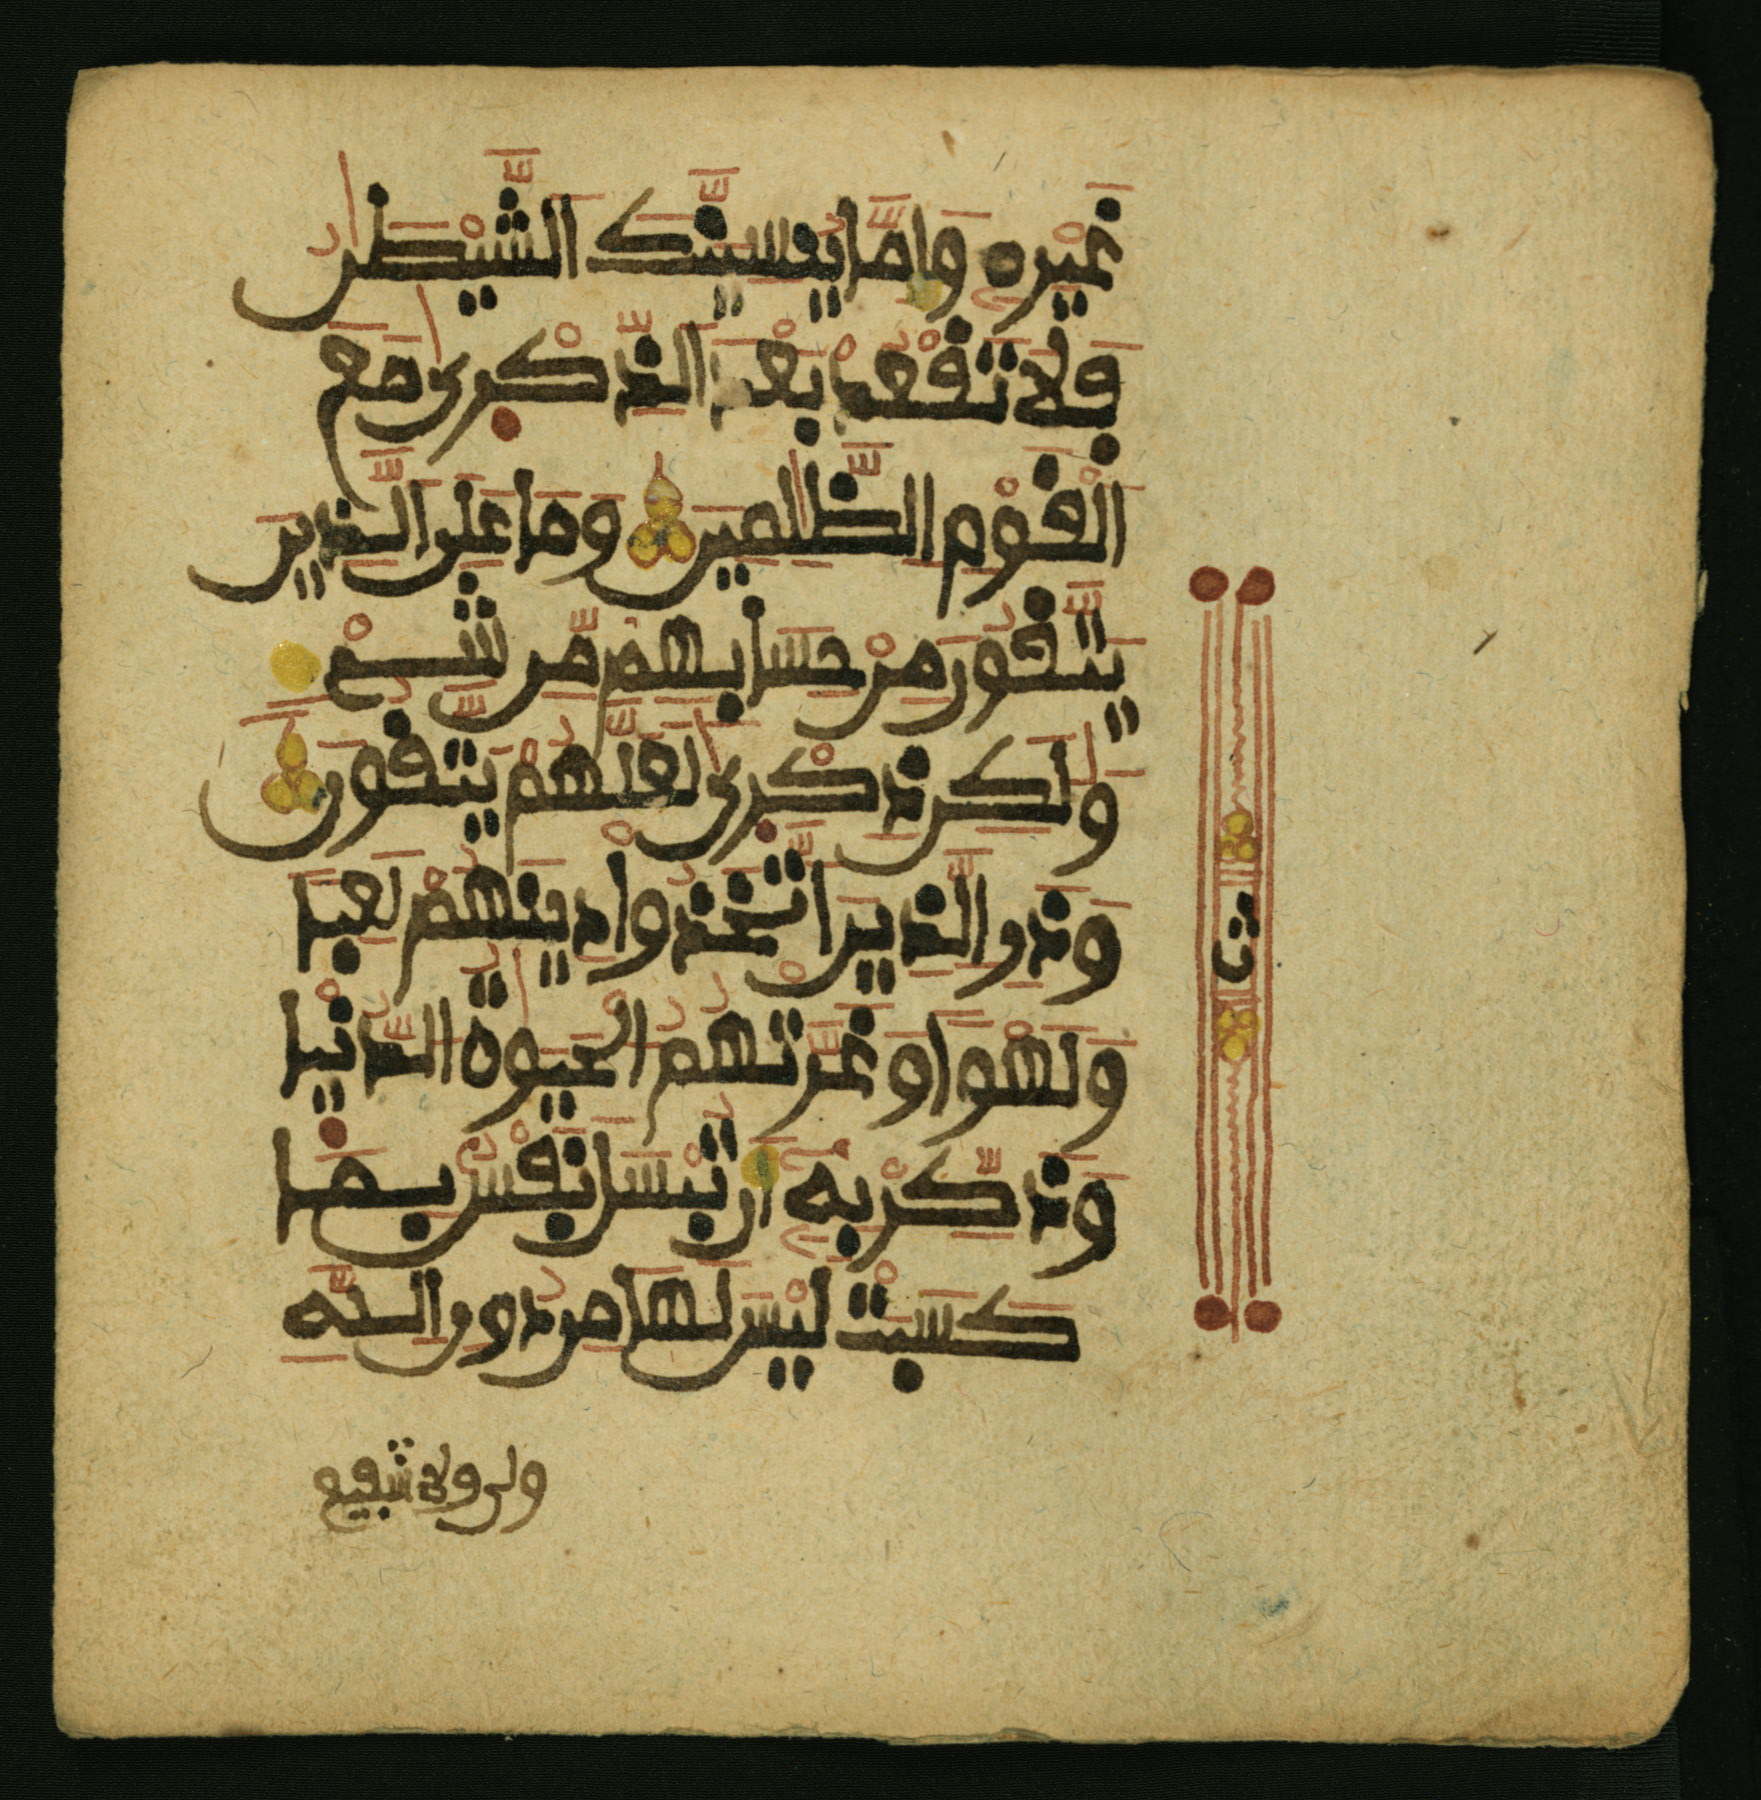 غَيْرِهِ وَإِمَّا يُنسِيَنَّكَ الشَّيْطَٰنُ
فَلَا تَقْعُدْ بَعْدَ الذِّكْرَىٰ مَعَ
الْقَوْمِ الظَّٰلِمِينَ وَمَا عَلَى الَّذِينَ
يَتَّقُونَ مِنْ حِسَابِهِم مِّن شَيْءٍ
وَلَٰكِن ذِكْرَىٰ لَعَلَّهُمْ يَتَّقُونَ
وَذَرِ الَّذِينَ اتَّخَذُوا دِينَهُمْ لَعِبًا
وَلَهْوًا وَغَرَّتْهُمُ الْحَيَوٰةُ الدُّنْيَا
وَذَكِّرْ بِهِ أَن تُبْسَلَ نَفْسٌ بِمَا
كَسَبَتْ لَيْسَ لَهَا مِن دُونِ اللَّهِ
ثمن
ولي ولا شفيع